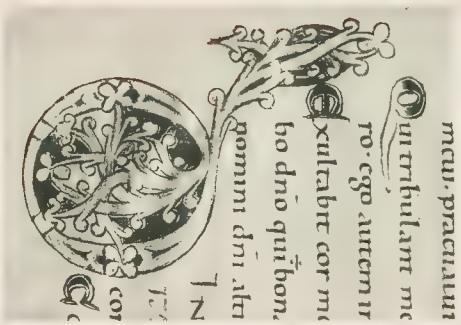 meus. praeualui
Qui tribulant me
ro. ego autem in
Exultabit cor me
bo dño qui bona
nomini dñi alti
IN
cor